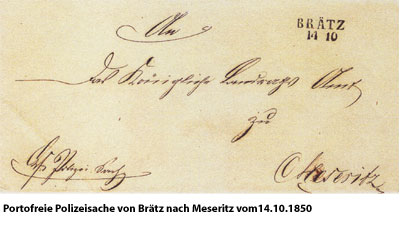 BRÄTZ
14 10
An
Das Königliche Landraths Amt
zu
Meseritz
Polizei Sache
Portofreie Polizeisache von Brätz nach Meseritz vom14.10.1850